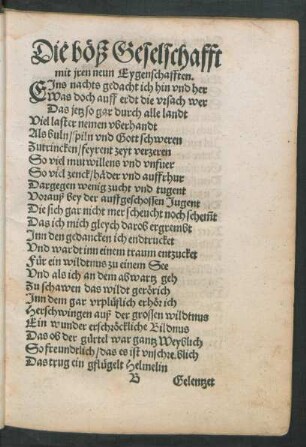 Die böß Geselschafft
mit jren neun Eygenschafften.
EIns nachts gedacht ich hin vnd her
Was doch auff erdt die vrsach wer
Das jetz so gar durch alle landt
Viel laster nemen vberhandt
Als buln/ spiln vnd Gott schweren
Zutrincken/ feyrent zeyt verzeren
So vil mutwillens vnd vnfuer
So vil zenck/ häder vnd auffrhur
Dargegen wenig zucht vnd tugent
Vorauß bey der auffgeschossen Jugent
Die sich gar nicht mer scheucht noch schemt
Das ich mich gleych darob ergrembt
Inn den gedancken ich endtrucket
Vnd wardt inn einem traum entzucket
Für ein wildtnus zu einem See
Vnd als ich an dem abwartz geh
Zu schawen das wildt gerörich
Inn dem gar vrplüpflich erhör ich
Herschwingen auß der grossen wildtnus
Ein wunder erschröckliche Bildnus
Das ob der gürtel war gantz Weyblich
So freundtlich/ das es ist vnschreyblich
Das trug ein gflügelt Helmelin
B Gelentzet